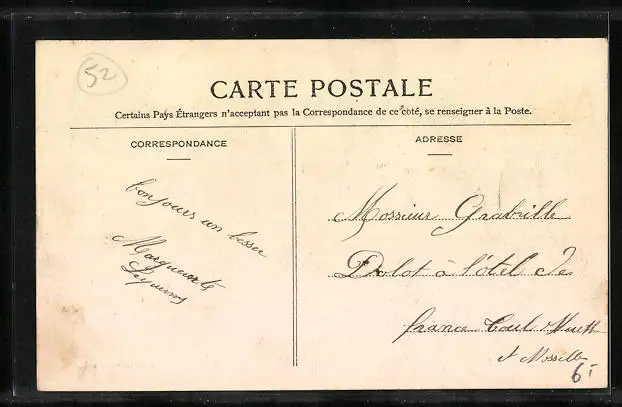 52
CARTE POSTALE
Certains Pays Étrangers n'acceptant pas la Correspondance de ce côté, se renseigner à la Poste.
CORRESPONDANCE
bonjours un besser
Marguerite
ADRESSE
Monsieur Grabrille
Dolot à l'ôtel de
france Toul Murth
et Moselle
6